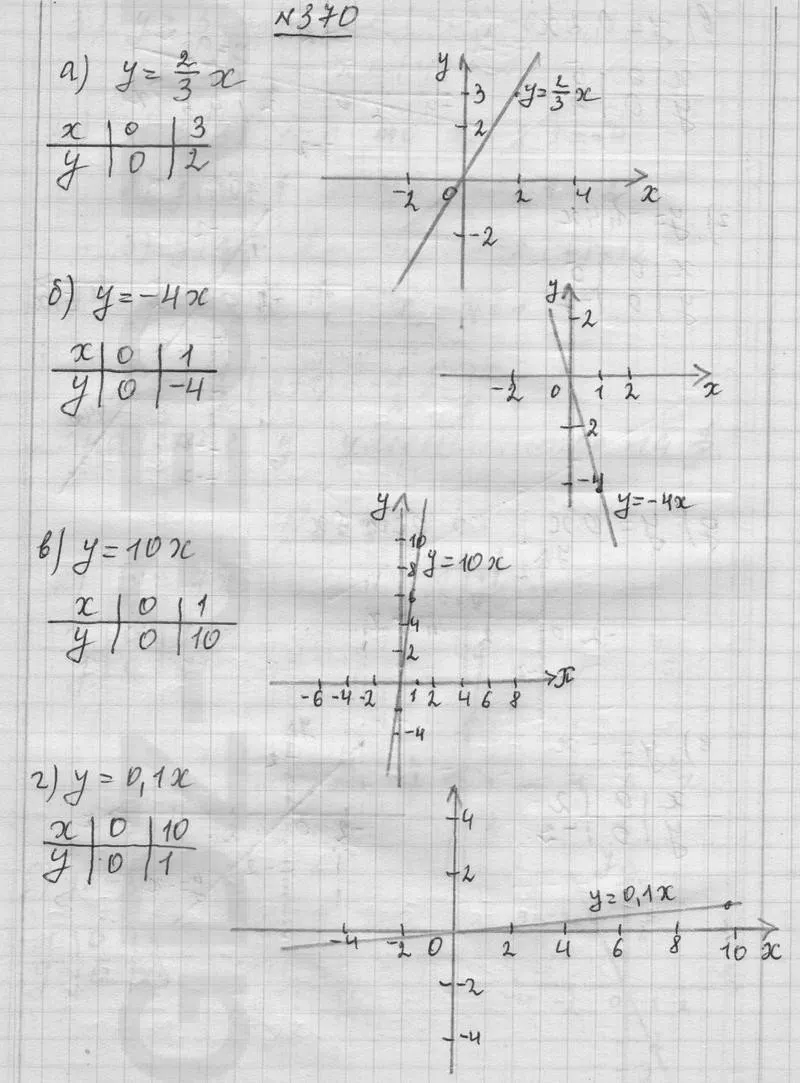 №370
а) y = 2/3 x
x | 0 | 3
y | 0 | 2
y
3
2
-2 0 2 4 x
-2
y = 2/3 x
б) y = -4x
x | 0 | 1
y | 0 | -4
y
2
-2 0 1 2 x
2
-4
y = -4x
в) y = 10x
x | 0 | 1
y | 0 | 10
y
10
8
6
4
2
-6 -4 -2 1 2 4 6 8
-4
y = 10x
г) y = 0,1x
x | 0 | 10
y | 0 | 1
4
2
-4 -2 0 2 4 6 8 10 x
-2
-4
y = 0,1x